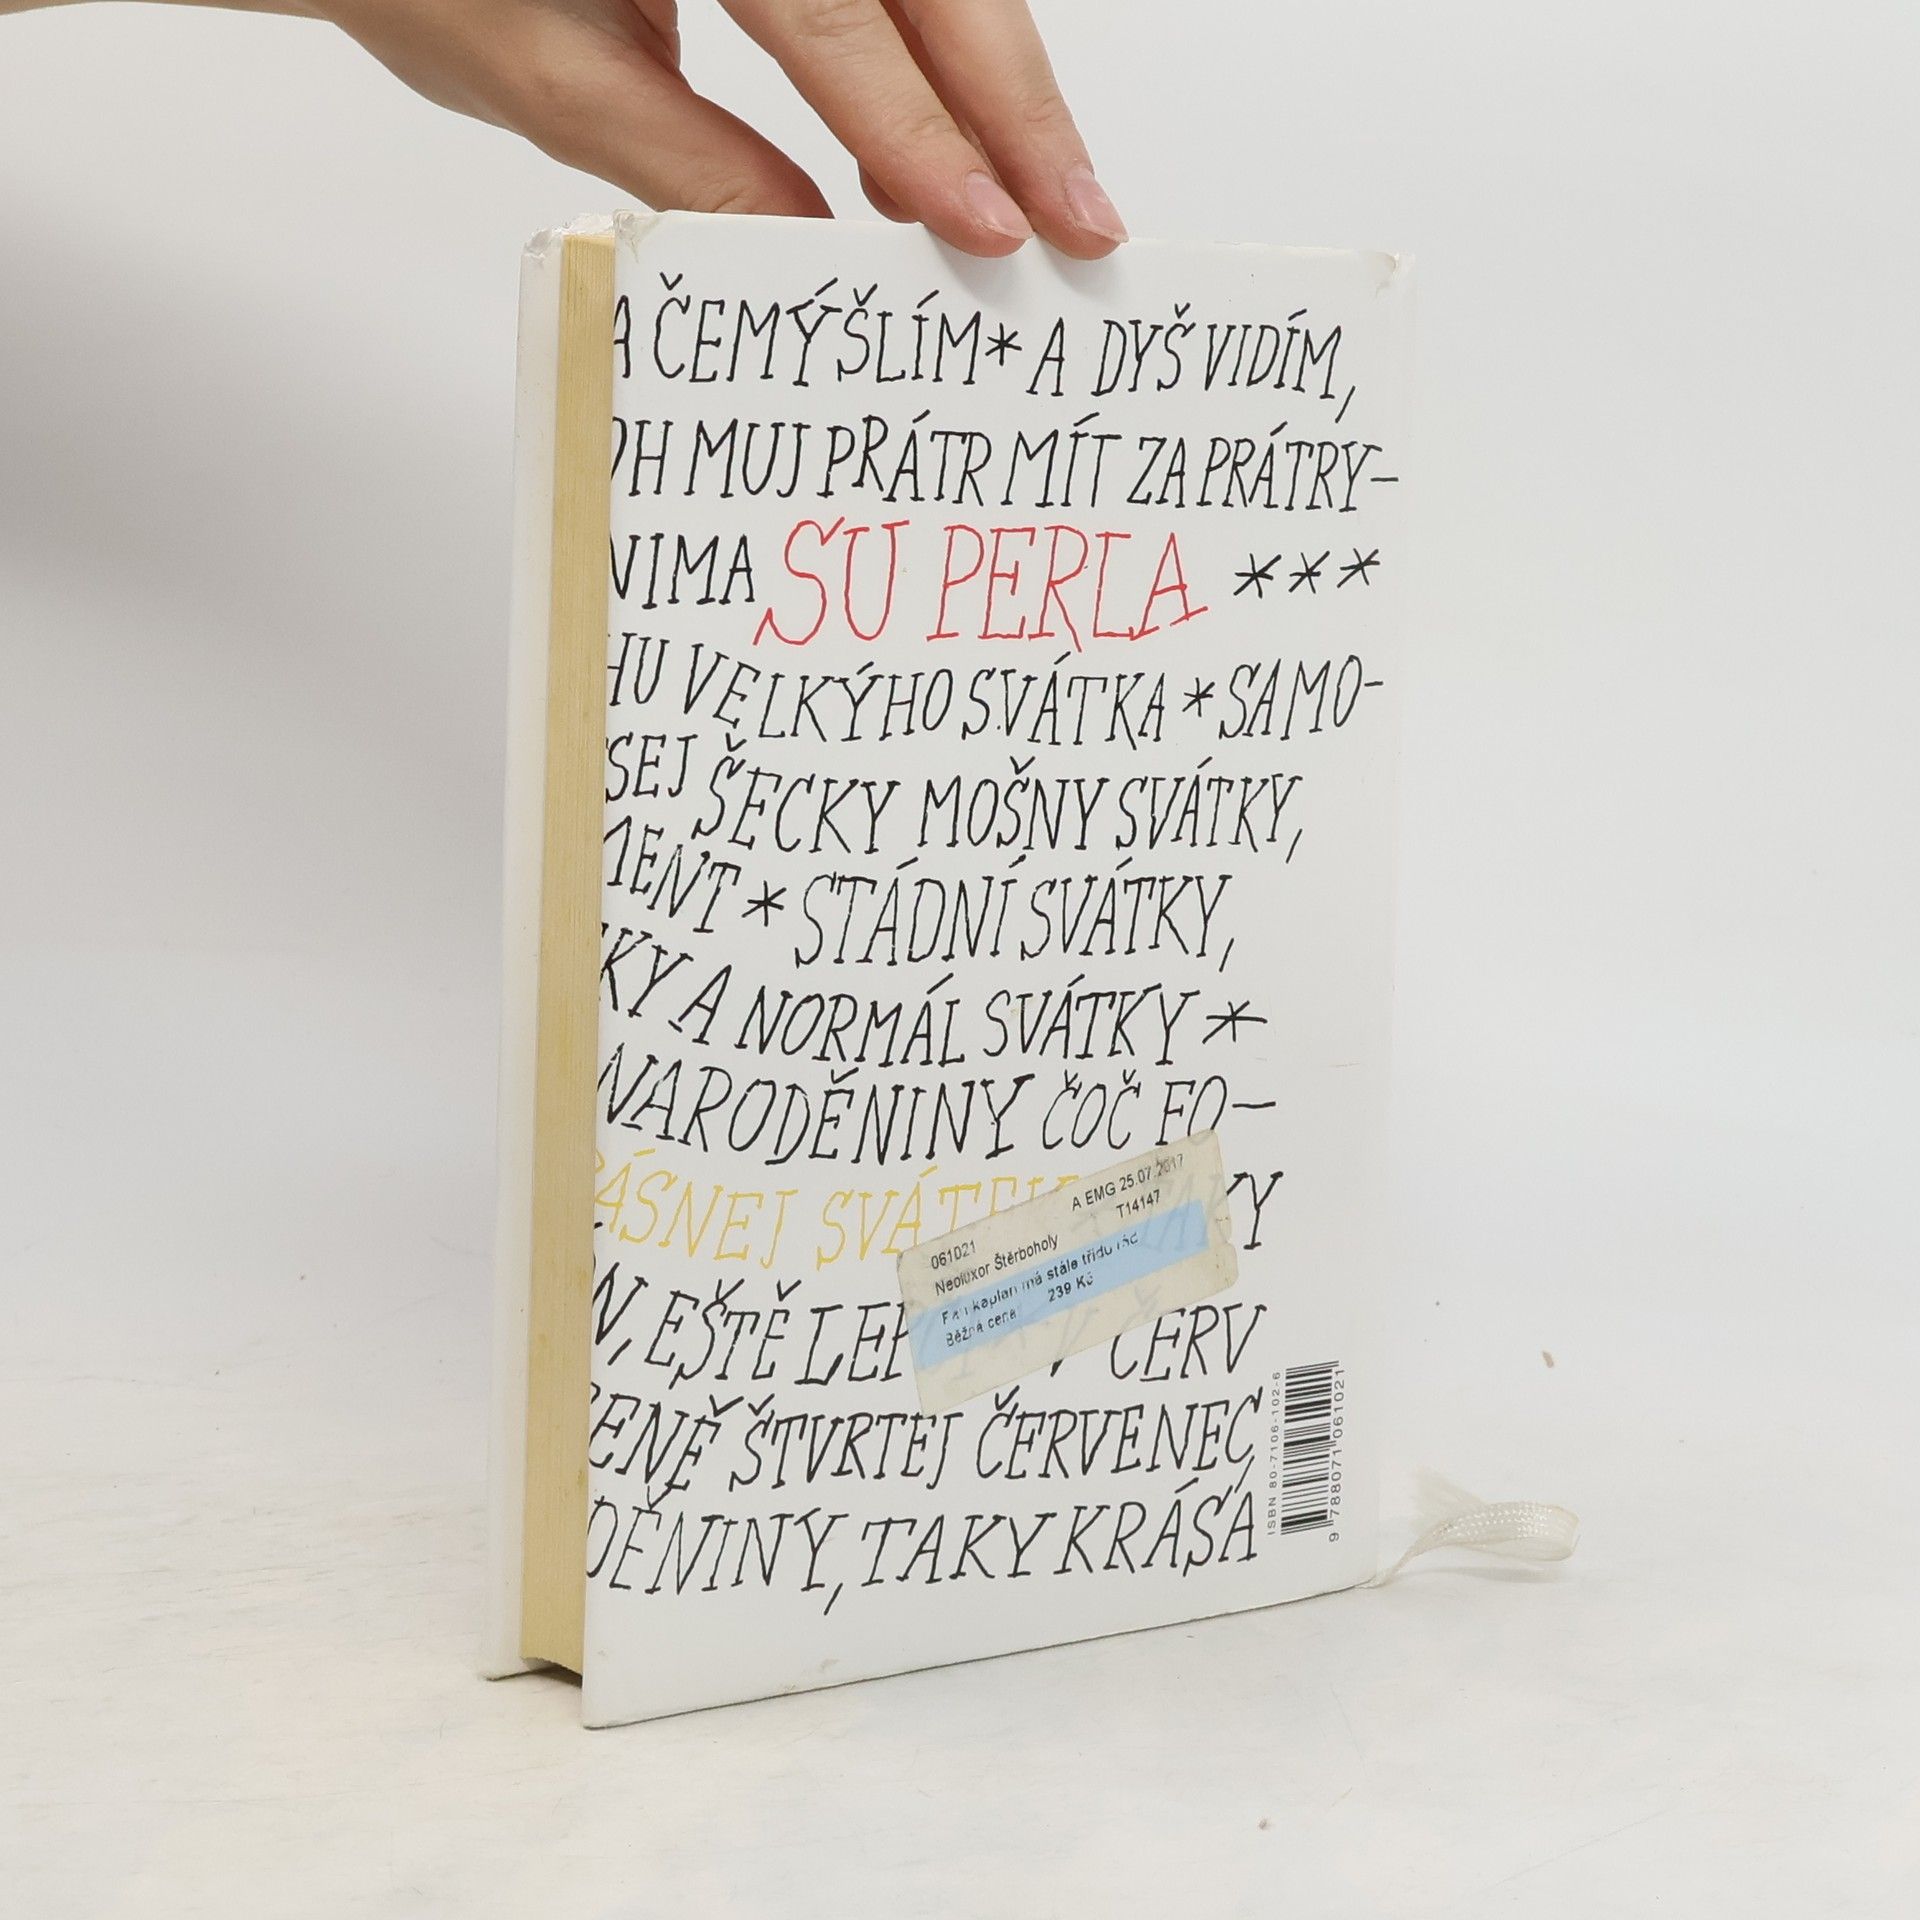 A ČEMÝŠLÍM * A DYŠ VIDÍM,
OH MUJ PRÁTR MÍT ZA PRÁTRY-
NIMA SU PERLA ***
HU VELKÝHO SVÁTKA * SAMO-
SEJ ŠECKY MOŠNY SVÁTKY,
MENT * STÁDNÍ SVÁTKY,
KY A NORMÁL SVÁTKY *
NARODĚNINY ČOČ FO-
ÁSNEJ SVÁTEK
N, EŠTĚ LEP V ČERV
ENĚ ŠTVRTEJ ČERVENEC,
DĚNINY, TAKY KRÁSÁ
A EMG 25.07.2017
T14147
061021
Neoluxor Štěrboholy
kaplan má stále třídu
Běžná cena 239 Kč
ISBN 80-7106-102-6
9 788071 061021